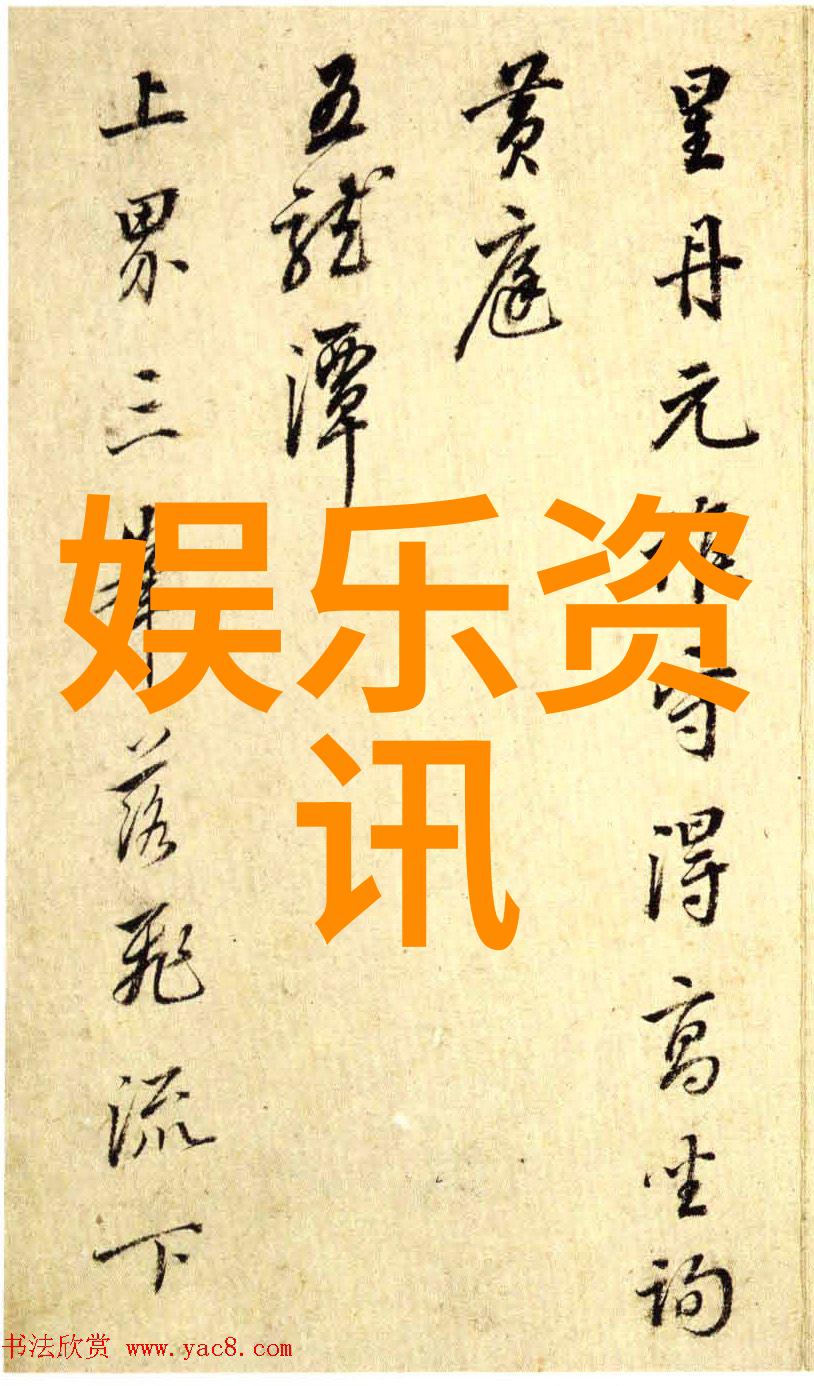 星丹元得高坐詢
黄庭
五龍潭
上界三峯落飛流下
娱乐资
讯
书法欣赏 www.yac8.com